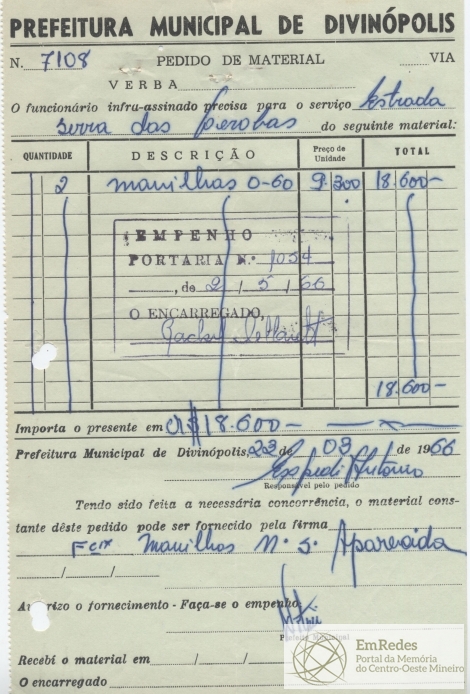 PREFEITURA MUNICIPAL DE DIVINÓPOLIS
N. 7108 PEDIDO DE MATERIAL VIA
VERBA
O funcionário infra-assinado precisa para o serviço Estrada
serra das Perobas do seguinte material:
QUANTIDADE DESCRIÇÃO Preço de Unidade TOTAL
2 manilhas 0-60 9.300 18.600-
EMPENHO
PORTARIA N.º 1054
, de 2 / 5 / 66
O ENCARREGADO,
18.600-
Importa o presente em CR$ 18.600-
Prefeitura Municipal de Divinópolis, 23 de 03 de 1966
Responsável pelo pedido
Tendo sido feita a necessária concorrência, o material cons-
tante dêste pedido pode ser fornecido pela firma
Fca Manilhas N. S. Aparecida
/ /
Autorizo o fornecimento - Faça-se o empenho:
Prefeito Municipal
Recebi o material em / /
O encarregado
EmRedes
Portal da Memória
do Centro-Oeste Mineiro